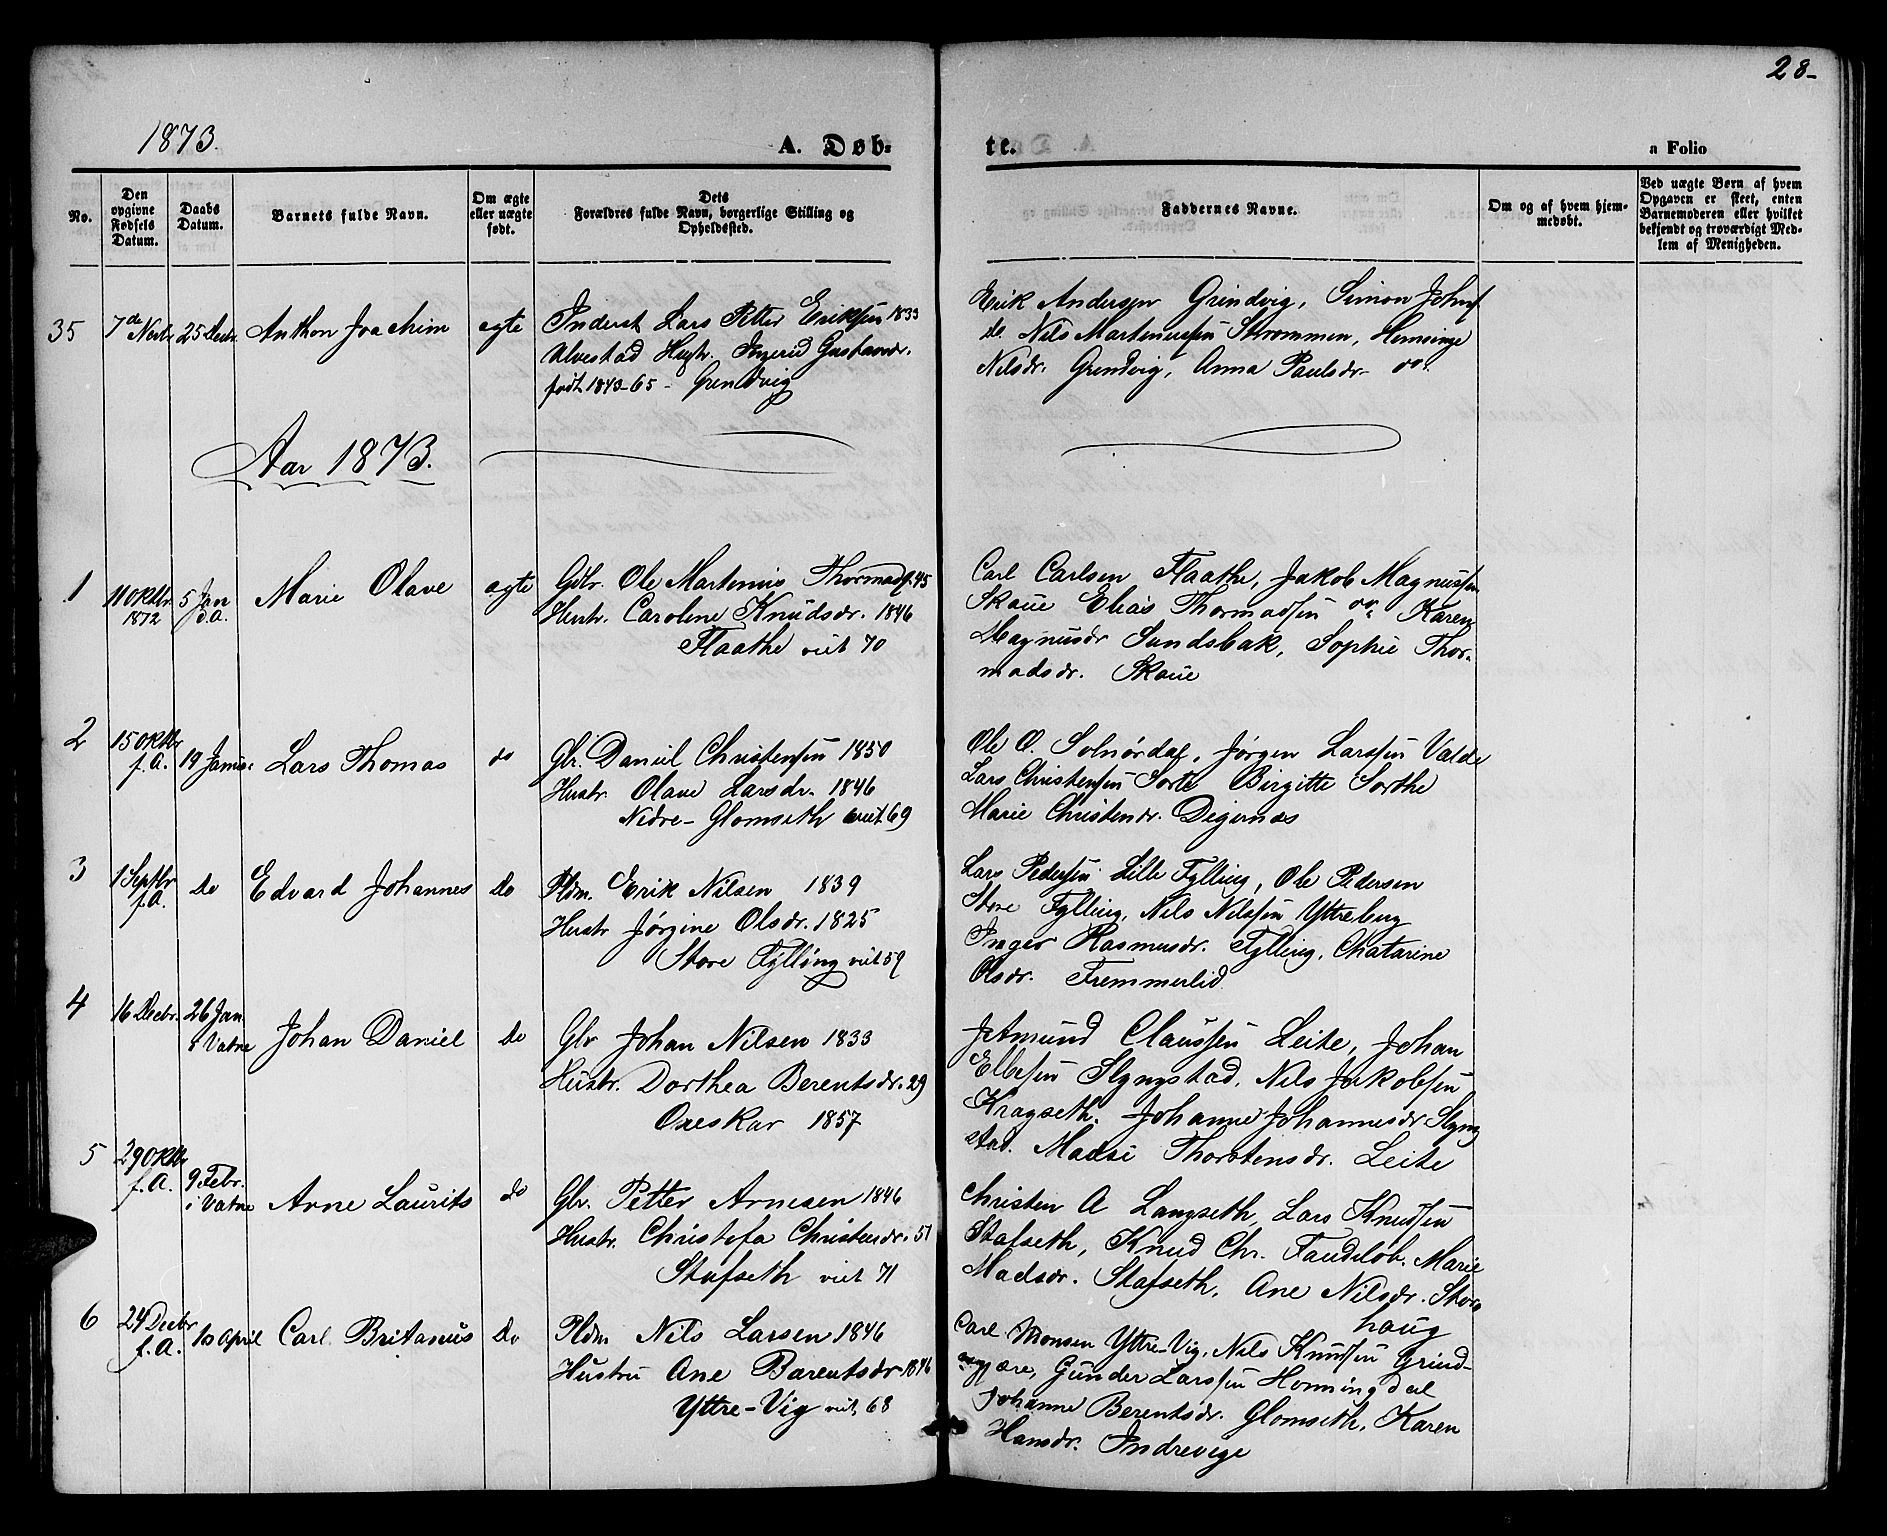 28-
1873.
A. Døb-
te.
a Folio
No.
Den opgivne Fødsels Datum.
Daabs Datum.
Barnets fulde Navn.
Om ægte eller uægte født.
Dets Forældres fulde Navn, borgerlige Stilling og Opholdssted.
Faddernes Navne.
Om og af hvem hjemmedøbt.
Ved uægte Børn af hvem Opgaven er skeet, enten Barnemoderen eller hvilket bekjendt og troværdigt Medlem af Menigheden.
35 7de Novbr 25 Decbr. Anthon Joachim ægte
Inderst Lars Petter Eriksen 1833
Ulvestad Hustr. Ingerid Gustavsdr.
født 1843-65 - Grindvig
Erik Andersen Grindvig, Simon Johns
do. Nils Martinussen Strømmen, Hemsine
Nilsdr. Grindvig, Anna Paulsdr. do.
Aar 1873.
1 11 Oktbr. 1872 5 Jan d.A. Marie Olave ægte
Gdbr. Ole Martinus Thormads. 45
Hustr. Caroline Knudsdr. 1846
Flaathe viet 70
Carl Carlsen Flaathe, Jakob Magnussen
Skaue Elias Thormadsen do Karen
Magnusdr Sundsbak, Sophie Thor-
madsdr. Skaue
2 15 Oktbr f.A. 19 Januar Lars Thomas do
Gbr. Daniel Christensen 1850
Hustr. Olave Larsdr. 1846
Nedre-Glomseth viet 69
Ole O. Solnørdal, Jørgen Larssen Valde
Lars Christensen Sorte Birgitte Sorthe
Marie Christensdr. Digernæs
3 1 Septbr f.A. Do Edvard Johannes Do
Pldm. Erik Nilsen 1839
Hustr Jørgine Olsdr. 1825
Store Fylling viet 59
Lars Pedersen Lille Fylling, Ole Pedersen
Store Fylling, Nils Nilssen Yttreberg
Inger Rasmusdr. Fylling, Chatarine
Olsdr. Fremmerlid
4 16 Decbr. 26 Jan. i Vatne Johan Daniel Do
Gbr Johan Nilsen 1833
Hustr. Dorthea Berentsdr. 29
Oxeskar 1857
Amund Claussen Leite, Johan
Ellefsen Slyngstad, Nils Jakobsen
Kragseth. Johanne Johannesdr Slyng
stad. Madsi Thorstensdr. Leite
5 29 Oktbr f.A. 9 Febr. i Vatne Arne Laurits do
Gbr. Petter Arnesen 1846
Hustr. Christofa Christensdr. 51
Stafseth viet 71
Christen A Langseth, Lars Knudsen
Stafseth, Knud Chr. Taudeløb. Marie
Madsdr. Stafseth, Ane Nilsdr. Stor
haug
6 24 Decbr f.A. 10 April Carl Britanus Do
Pldm Nils Larsen 1846
Hustru Ane Barentsdr. 1846
Yttre-Vig viet 68
Carl Monsen Yttre-Vig, Nils Knudsen Grind-
gjære, Gunder Larssen Honningdal
Johanne Berentsdr. Glomseth, Karen
Hansdr. Indrevige